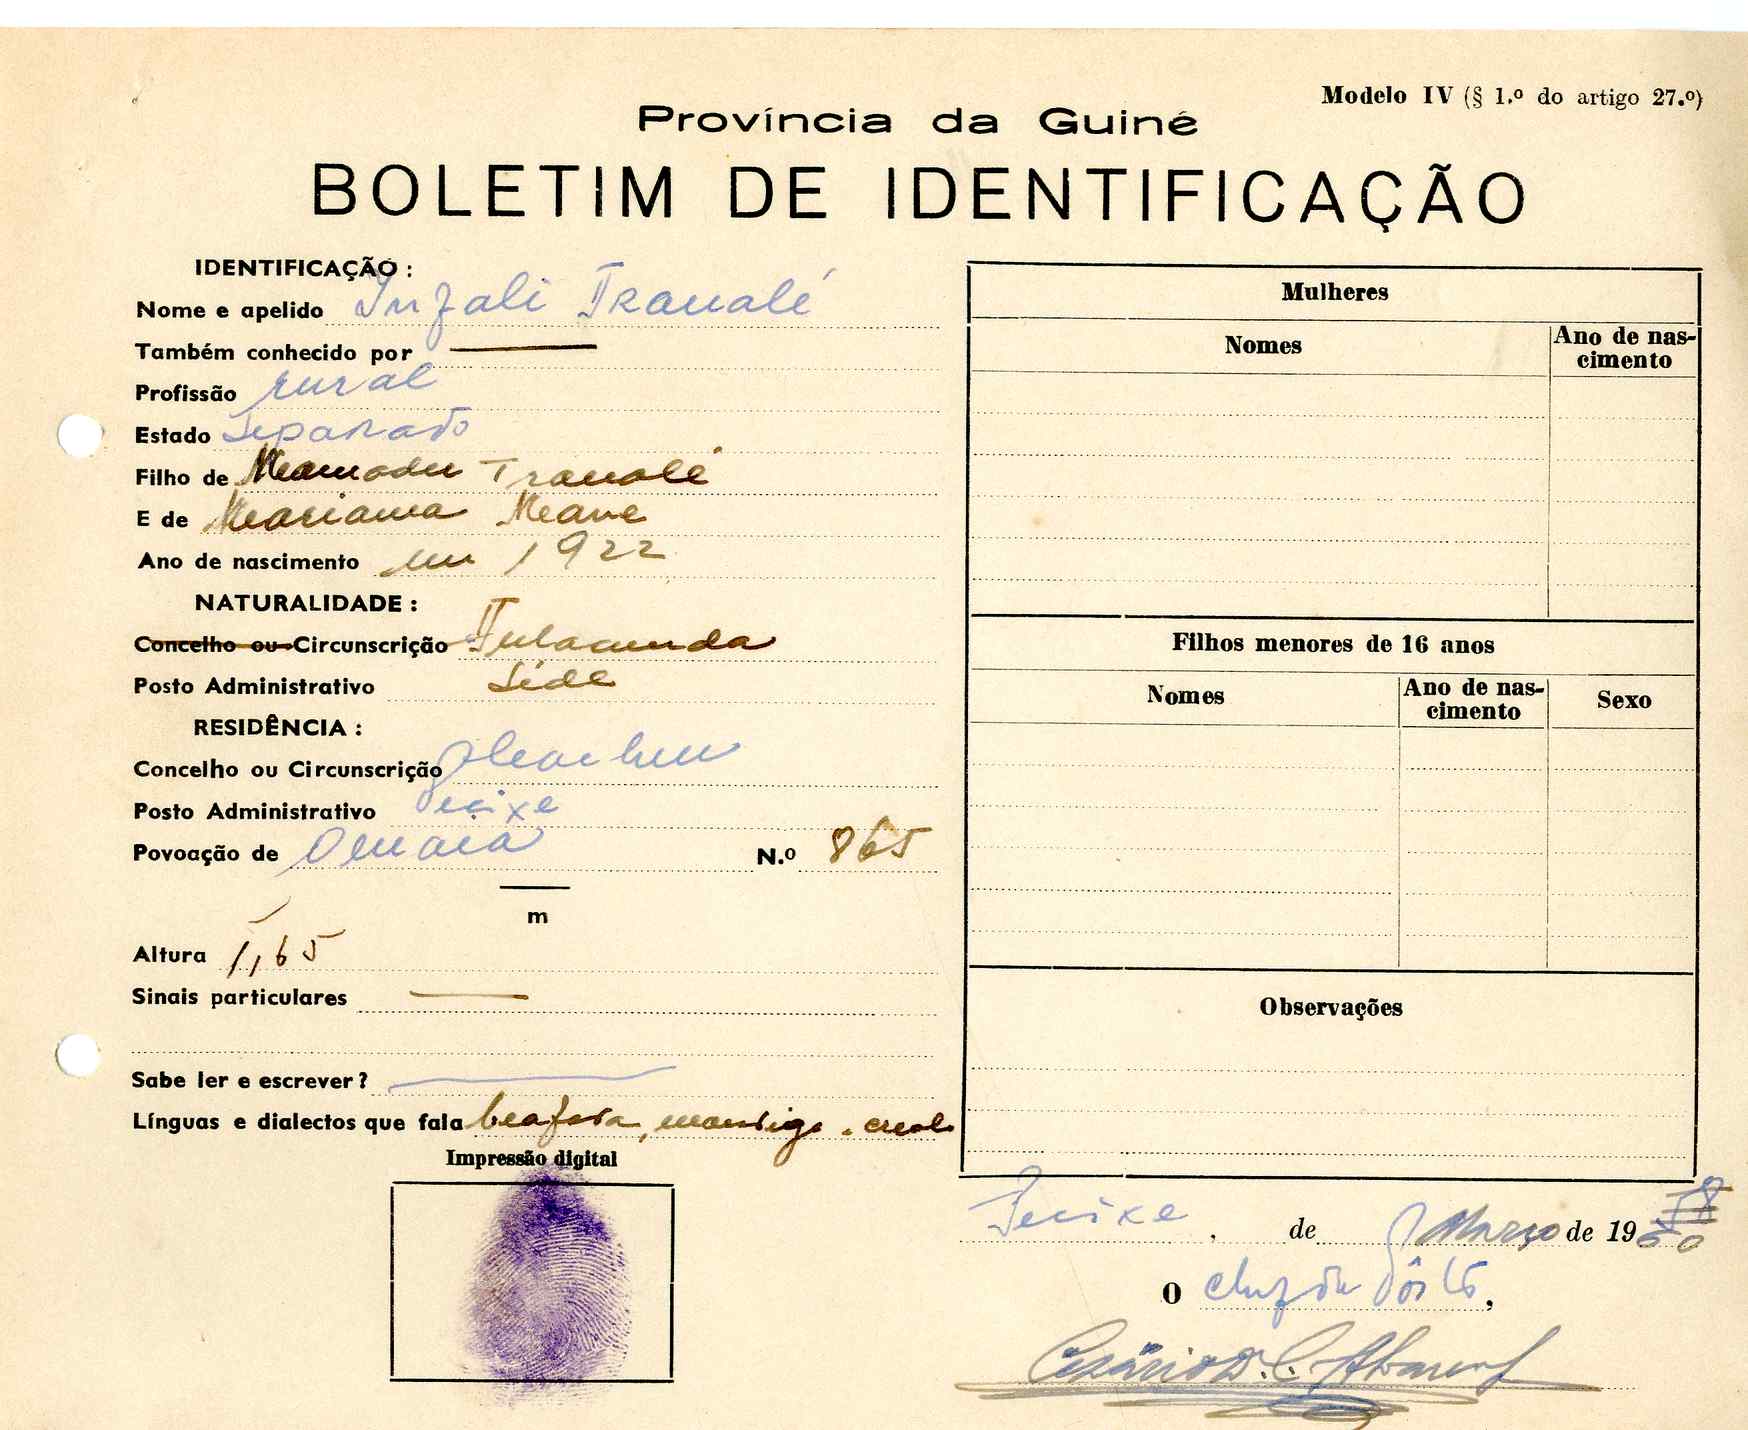 Modelo IV (§ 1.º do artigo 27.º)
Província da Guiné
BOLETIM DE IDENTIFICAÇÃO
IDENTIFICAÇÃO :
Nome e apelido Infali Traualé
Também conhecido por
Profissão rural
Estado Separado
Filho de Mamadu Traualé
E de Mariama Mane
Ano de nascimento em 1922
NATURALIDADE :
Concelho ou Circunscrição Fulacunda
Posto Administrativo Séde
RESIDÊNCIA :
Concelho ou Circunscrição
Posto Administrativo
Povoação de
N.º 865
m
Altura 1,65
Sinais particulares
Sabe ler e escrever ?
Línguas e dialectos que fala beafada, mandiga
Impressão digital
Mulheres
Nomes
Ano de nas-
cimento
Filhos menores de 16 anos
Nomes
Ano de nas-
cimento
Sexo
Observações
, de Março de 19
O